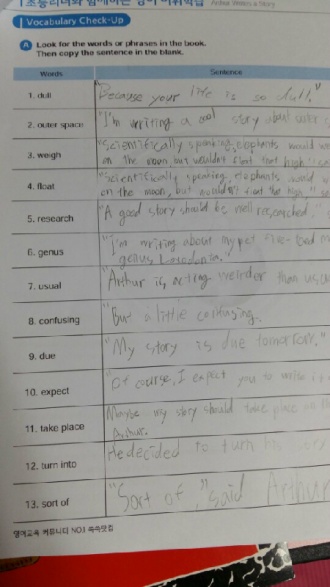 Arthur Writes a Story
Vocabulary Check-Up
A Look for the words or phrases in the book.
Then copy the sentence in the blank.
Words Sentence
1. dull "Because your life is so dull."
2. outer space "I'm writing a cool story about outer
3. weigh "Scientifically speaking, elephants would
on the moon, but wouldn't float that high"
4. float "Scientifically speaking, elephants would
on the moon, but wouldn't float that high,"
5. research "A good story should be well researched."
6. genus "I'm writing about my pet five-toed
genus
7. usual "Arthur is acting weirder than
8. confusing "But a little confusing.
9. due "My story is due tomorrow."
10. expect "Of course, I expect you to write
11. take place Maybe my story should take place
12. turn into He decided to turn his story
13. sort of "Sort of," said Arthur
영어교육 커뮤니티 NO.1 쑥쑥닷컴